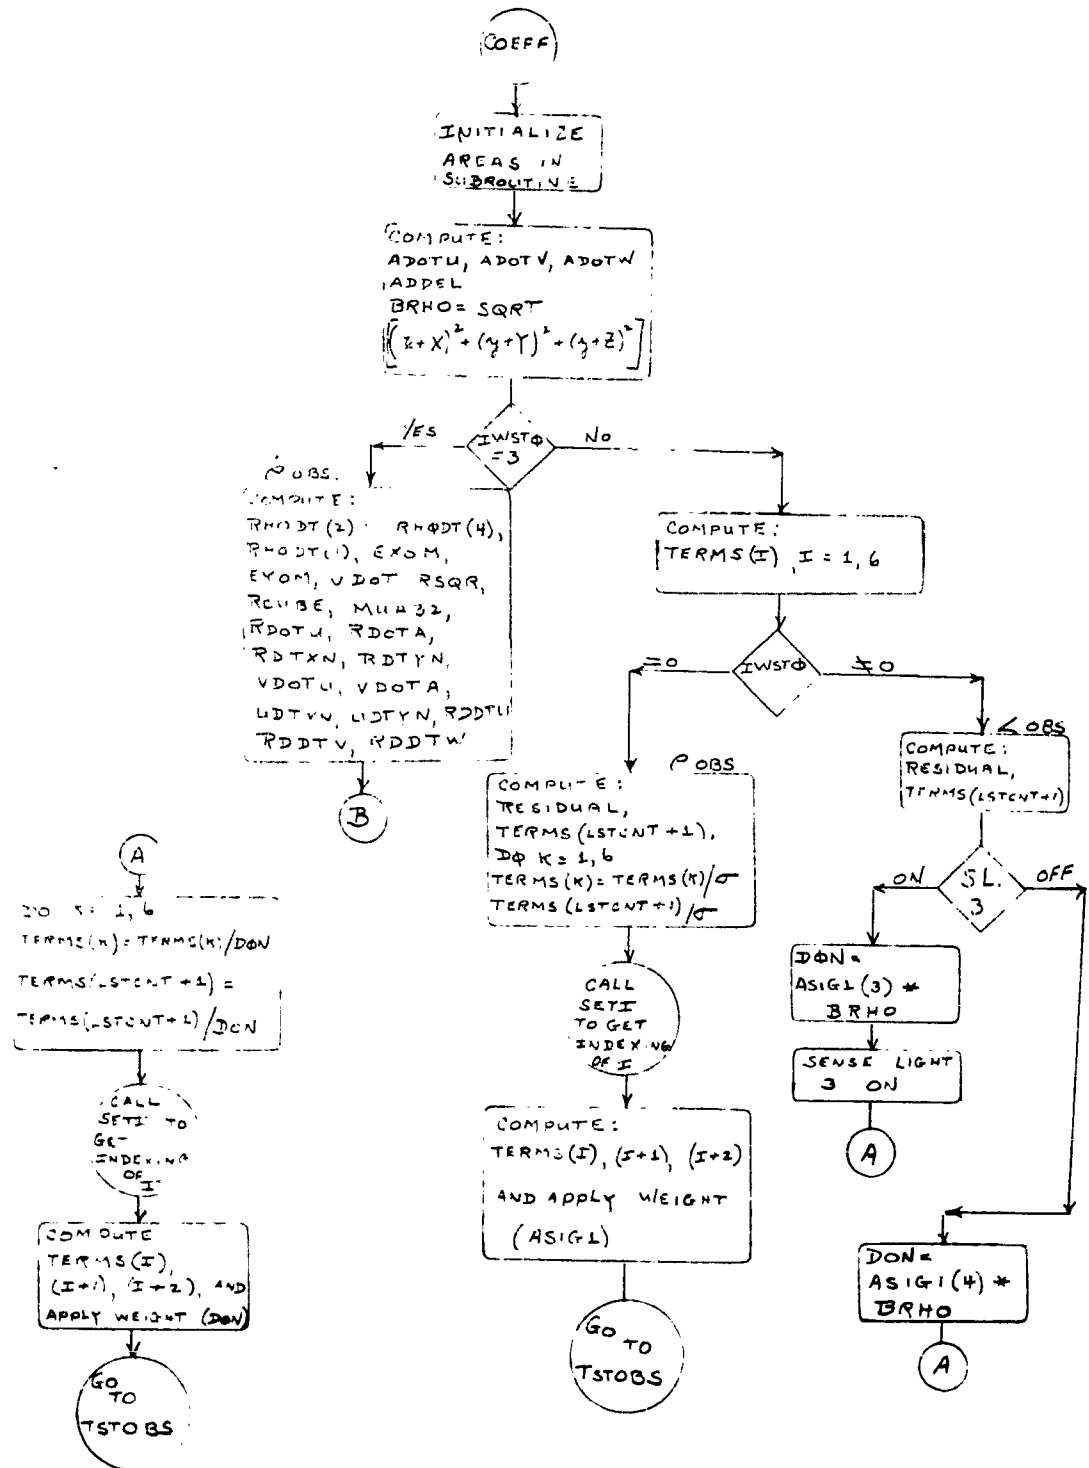 COEFF
INITIALIZE
AREAS IN
SUBROUTINE
COMPUTE:
ADOTU, ADOTV, ADOTW
ADDEL
BRHO = SQRT
[(x+X)² + (y+Y)² + (z+Z)²]
IWSTΦ
=3
YES
NO
ρ̇ OBS.
COMPUTE:
RHODT(2) RHΦDT(4),
RHODT(1), EXOM,
EYOM, VDOT RSQR,
RCUBE, MUH32,
RDOTU, RDOTA,
RDTXN, RDTYN,
VDOTU, VDOTA,
UDTYN, RDDTU
RDDTV, RDDTW
B
COMPUTE:
TERMS(I), I = 1, 6
IWSTΦ
=0
≠0
ρ OBS
COMPUTE:
RESIDUAL,
TERMS(LSTCNT+1),
DΦ K = 1, 6
TERMS(K) = TERMS(K)/σ
TERMS(LSTCNT+1)/σ
CALL
SETI
TO GET
INDEXING
OF I
COMPUTE:
TERMS(I), (I+1), (I+2)
AND APPLY WEIGHT
(ASIG1)
GO
TO
TSTOBS
∠ OBS
COMPUTE:
RESIDUAL,
TERMS(LSTCNT+1)
S.L.
3
ON
OFF
DΦN =
ASIG1(3) *
BRHO
SENSE LIGHT
3 ON
A
DON =
ASIG1(4) *
BRHO
A
A
DO K = 1, 6
TERMS(K) = TERMS(K)/DΦN
TERMS(LSTCNT+1) =
TERMS(LSTCNT+1)/DON
CALL
SETI TO
GET
INDEXING
OF I
COMPUTE
TERMS(I),
(I+1), (I+2), AND
APPLY WEIGHT (DΦN)
GO
TO
TSTOBS